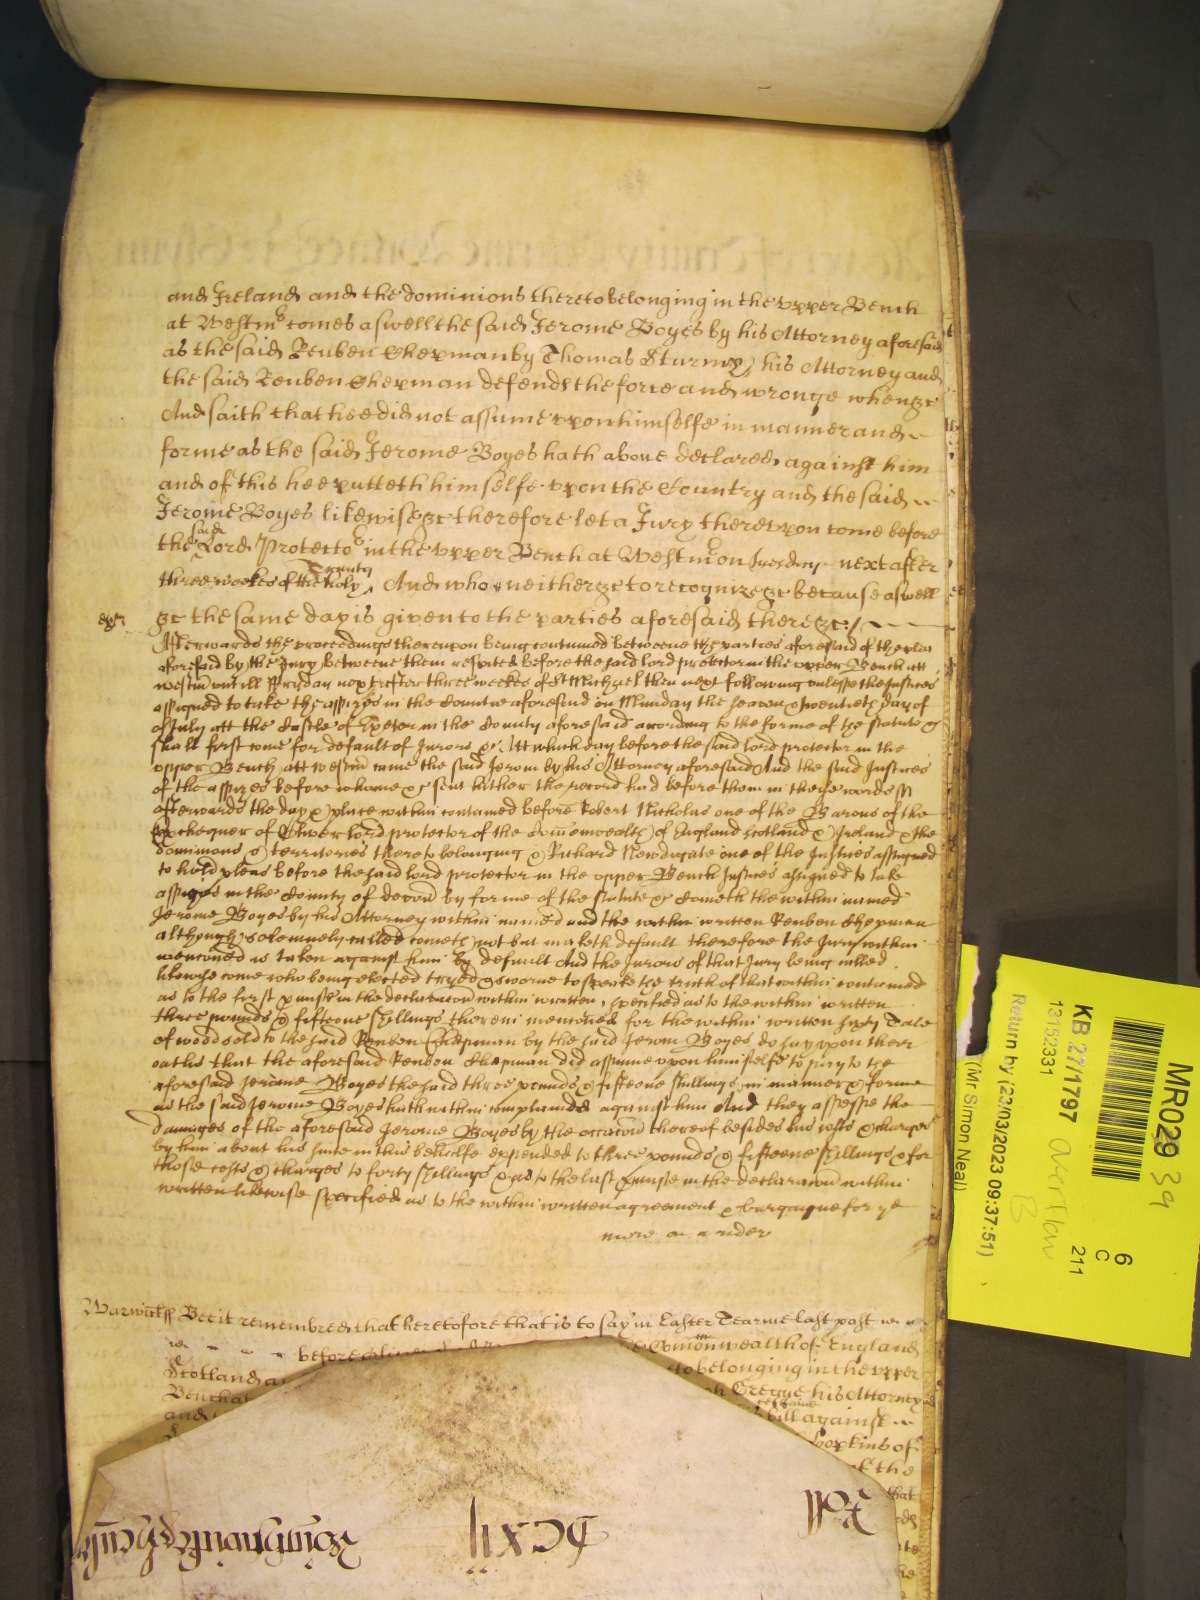 and Ireland and the dominions thereto belonging in the upper Bench
at Westmr comes aswell the said Jerome Boyes by his Attorney aforesaid
as the said Reuben Shepman by Thomas Sturmy his Attorney and
the said Reuben Shepman defends the force and wronge when &c
And saith that hee did not assume upon himselfe in manner and
forme as the said Jerome Boyes hath above declared against him
and of this hee putteth himselfe upon the Country and the said
Jerome Boyes likewise &c therefore let a Jury thereupon come before
the said Lord Protector in the upper Bench at Westmr on Tuesday next after
three weekes of the holy Trinity And who neither &c to recognize &c because aswell
&c the same day is given to the parties aforesaid there &c /
Afterwards the proceedings thereupon being continued betweene the parties aforesaid of the plea
aforesaid by the Jury betweene them respited before the said lord protector in the upper Bench att
westm untill Fryday next after three weekes of St Michael then next following unlesse the Justices
assigned to take the assizes in the Countie aforesaid on Munday the seaven & twentieth day of
July att the Castle of Exeter in the County aforesaid according to the forme of the statute &c
shall first come for default of Jurors &c Att which day before the said lord protector in the
upper Bench att westm came the said Jerom by his Attorney aforesaid And the said Justices
of the assizes before whome &c sent hither the record had before them in these words ss
afterwards the day & place within contained before Robert Nicholas one of the Barons of the
Exchequer of Oliver lord protector of the Comonwealth of England Scotland & Ireland & the
dominions & territories thereto belonging & Richard Newdigate one of the Justices assigned
to hold pleas before the said lord protector in the upper Bench Justices assigned to take
assizes in the County of devon by forme of the statute &c Cometh the within named
Jerome Boyes by his Attorney within named and the within written Reuben Shepman
although solemnely called cometh not but maketh default therefore the Jury within
mencioned is taken against him by default And the Jurors of that Jury being called
likewise come who being elected tryed & sworne to speake the truth of that within contained
as to the first & in the declaracon within written specified as to the within written
three pounds & fifteene shillings therein mencioned for the within written
of wood sold to the said Reuben Chapman by the said Jerom Boyes do say upon their
oaths that the aforesaid Reuben Chapman did assume upon himselfe to pay to the
aforesaid Jerome Boyes the said three pounds & fifteene shillings in manner & forme
as the said Jerome Boyes hath within complained against him And they assesse the
damages of the aforesaid Jerome Boyes by the occasion thereof besides his costs & charges
by him about his suite in this behalfe expended to three pounds & fifteene shillings & for
those costs & charges to forty shillings & as to the last in the declaracon within
written likewise specified as to the within written agreement & bargaine for ye
more on a rider
Warwick ss Bee it remembred that heretofore that is to say in Easter Tearme last past
before Comonwealth of England
Scotland to belonging in the upper
Bench at Gregge his Attorney
and bill against
Hopkins of
of the
that
Roll
DCXII
MR029 39
6
C
211
KB 27/1797
13152331
overflow
B
Return by (23/03/2023 09:37:51)
(Mr Simon Neal)